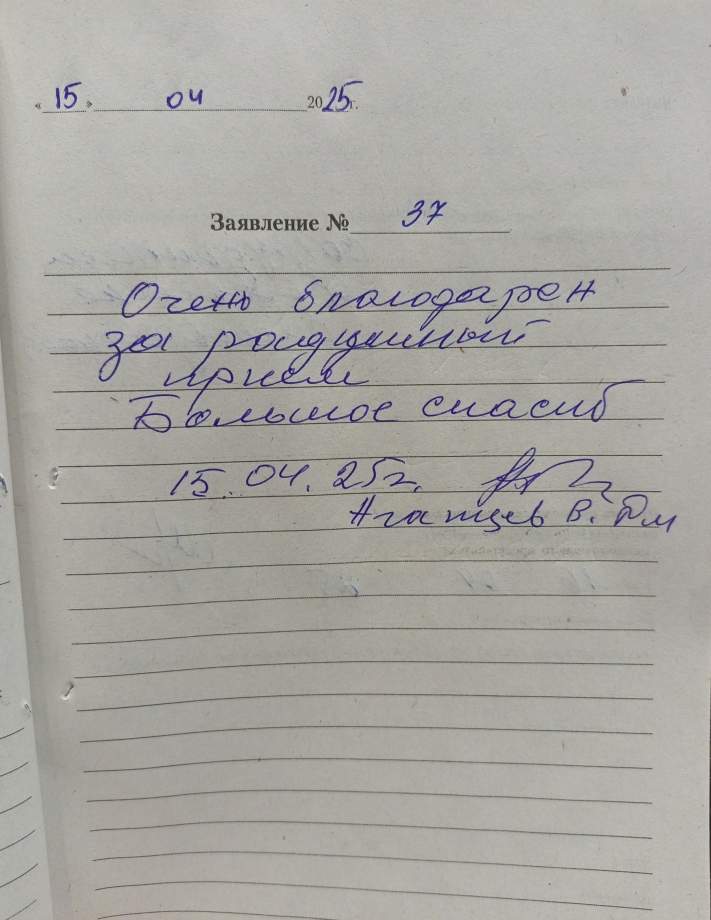 « 15 » 04 2025 г.
Заявление № 37
Очень благодарен
за радушный
прием
Большое спасиб
15.04.25г.
В. Дм